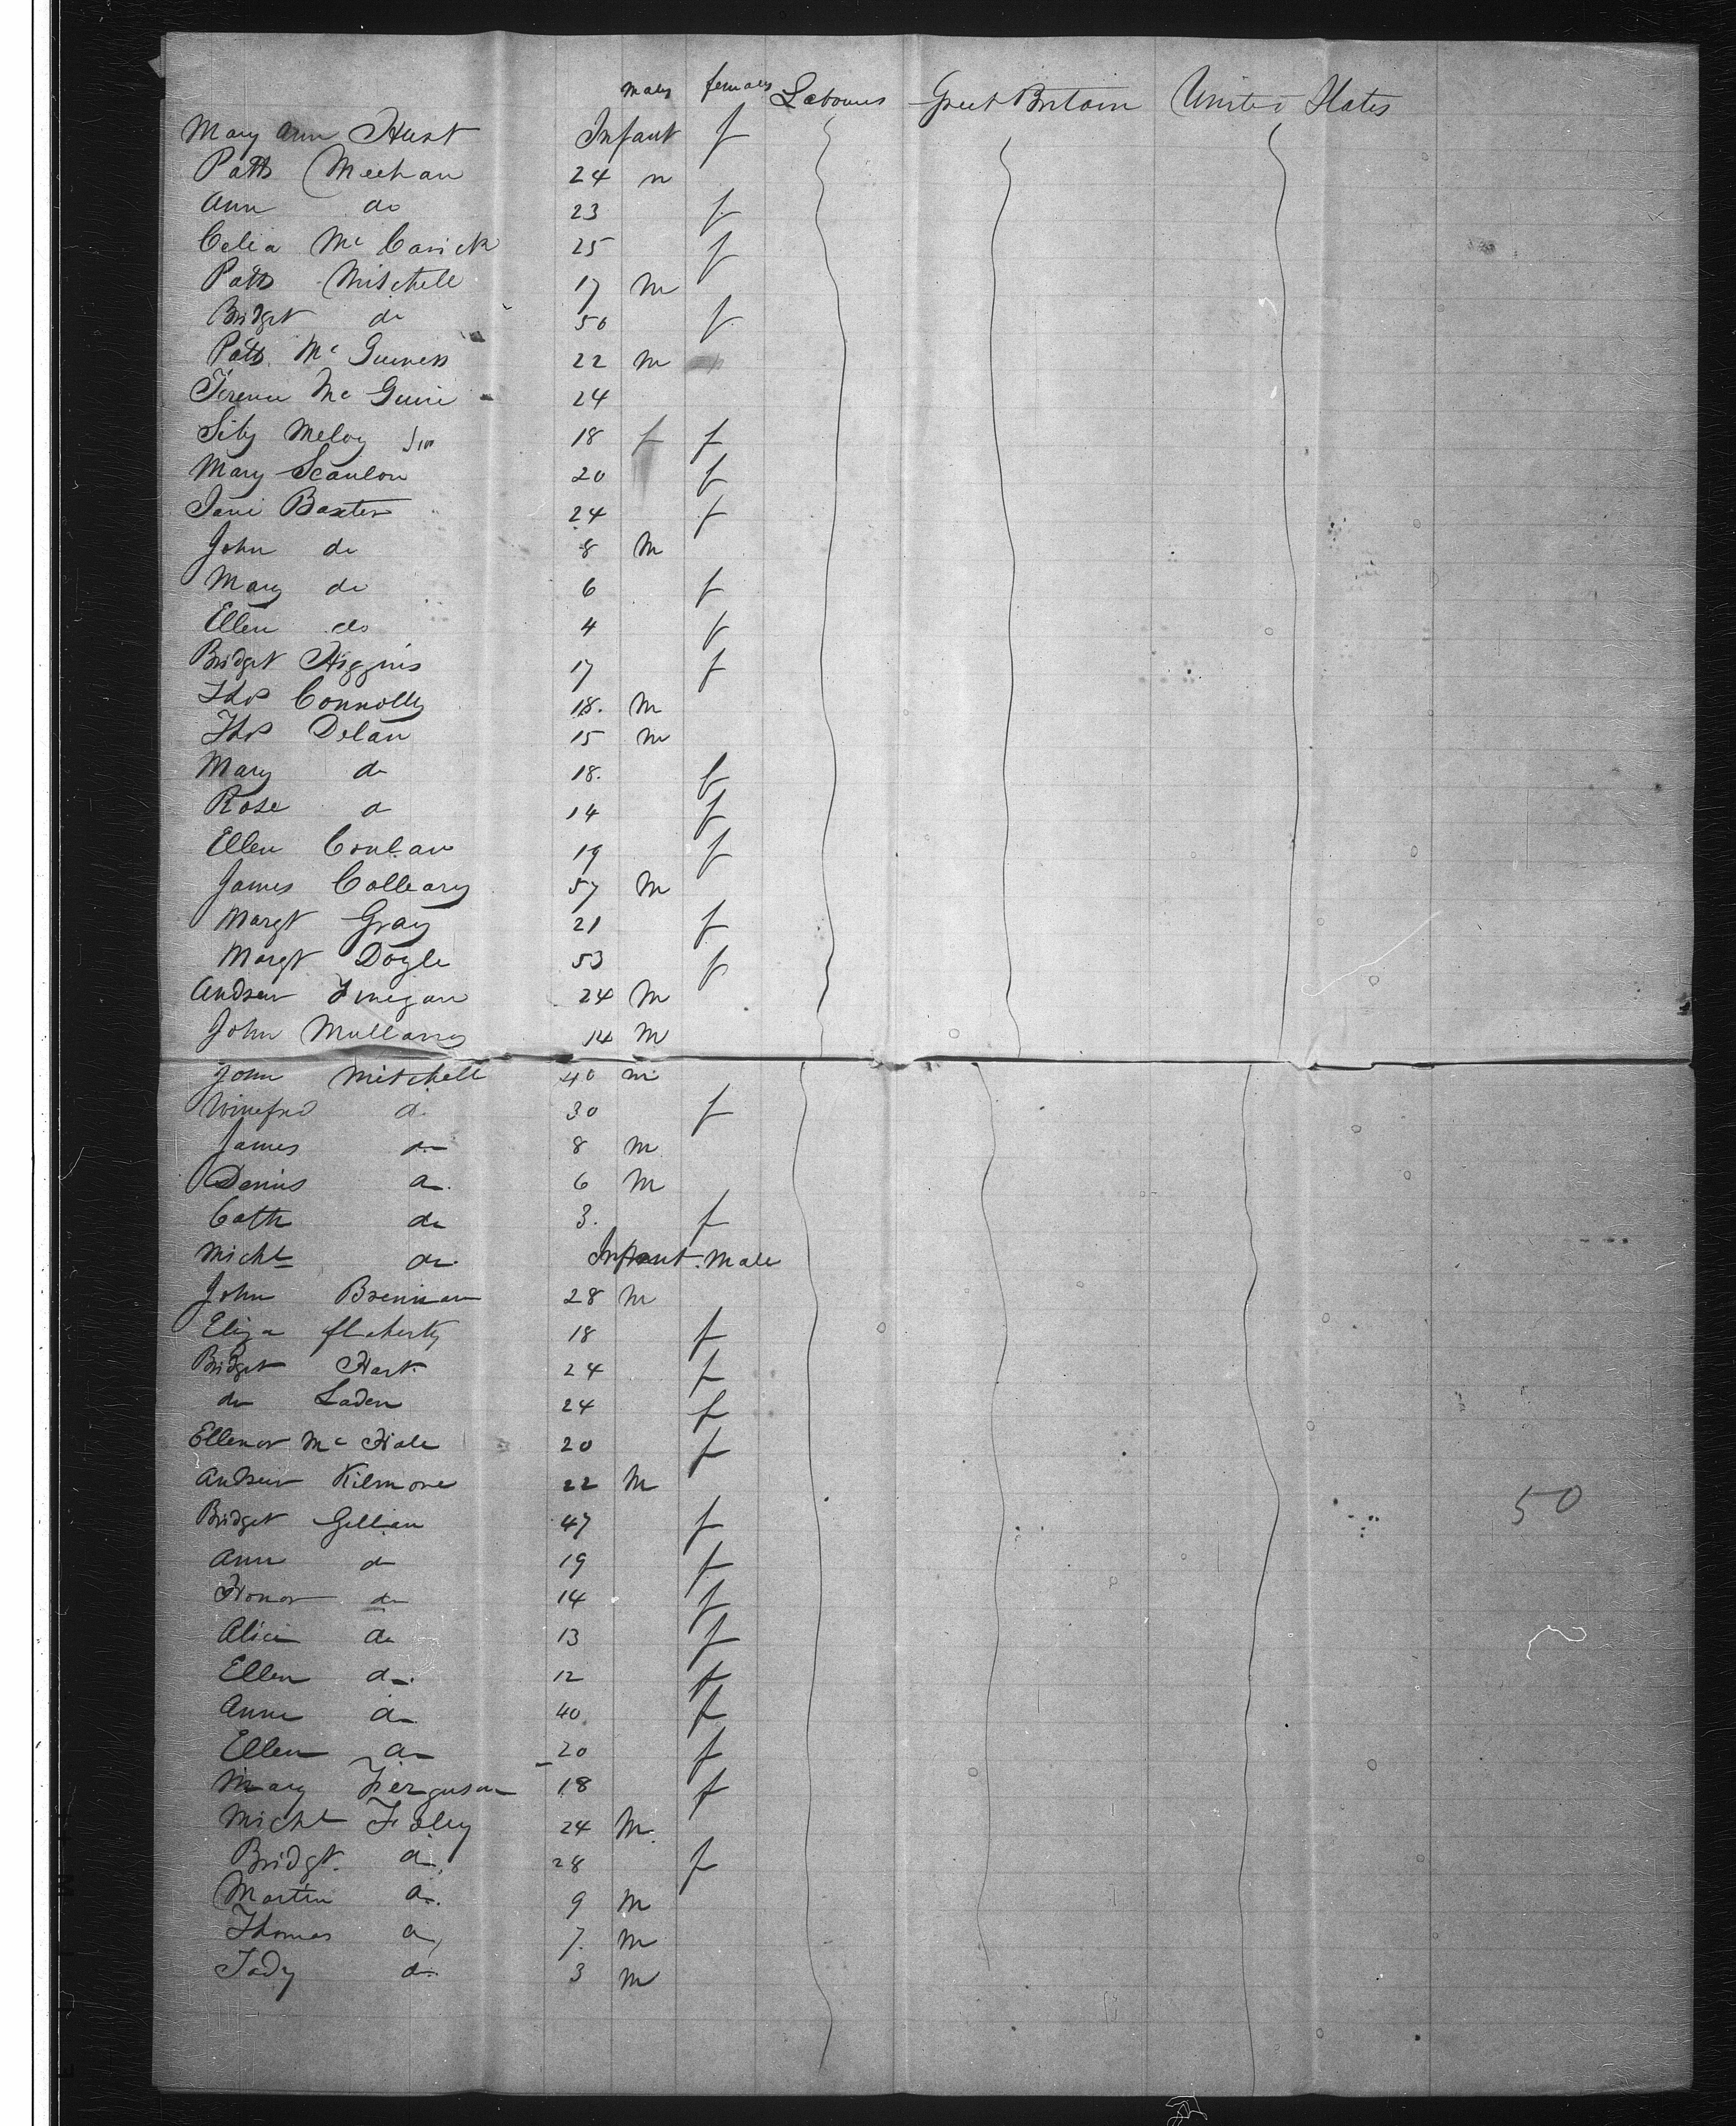 males females Labourers Great Britain United States
Mary Ann Hart Infant f
Patk Meehan 24 m
Ann do 23 f
Celia Mc Carrick 25 f
Patk Mitchell 17 m
Bridget do 50 f
Patk Mc Guiness 22 m
Terence Mc Guire 24
Sibj Meloy 18 f f
Mary Scanlon 20 f
Jane Baxter 24 f
John do 8 m
Mary do 6 f
Ellen do 4 f
Bridget Higgins 17 f
Thos Connolly 18. m
Thos Delan 15 m
Mary do 18. f
Rose do 14 f
Ellen Conlan 19 f
James Colleary 57 m
Margt Gray 21 f
Margt Doyle 53 f
Andrew Finegan 24 m
John Mullany 14 m
John Mitchell 40 m
Winefred do 30 f
James do 8 m
Denis do 6 m
Cath do 3. f
Michl do Infant. Male
John Brennan 28 m
Eliza flaherty 18 f
Bridget Hart 24 f
do Laden 24 f
Ellenor Mc Hale 20 f
Andrew Kilmore 22 m
Bridget Gillian 47 f
Ann do 19 f
Honor do 14 f
Alice do 13 f
Ellen do 12 f
Anne do 40 f
Ellen do 20 f
Mary Ferguson 18 f
Michl Foley 24 m
Bridgt. do 28 f
Martin do 9 m
Thomas do 7. m
Tady do 3 m
50